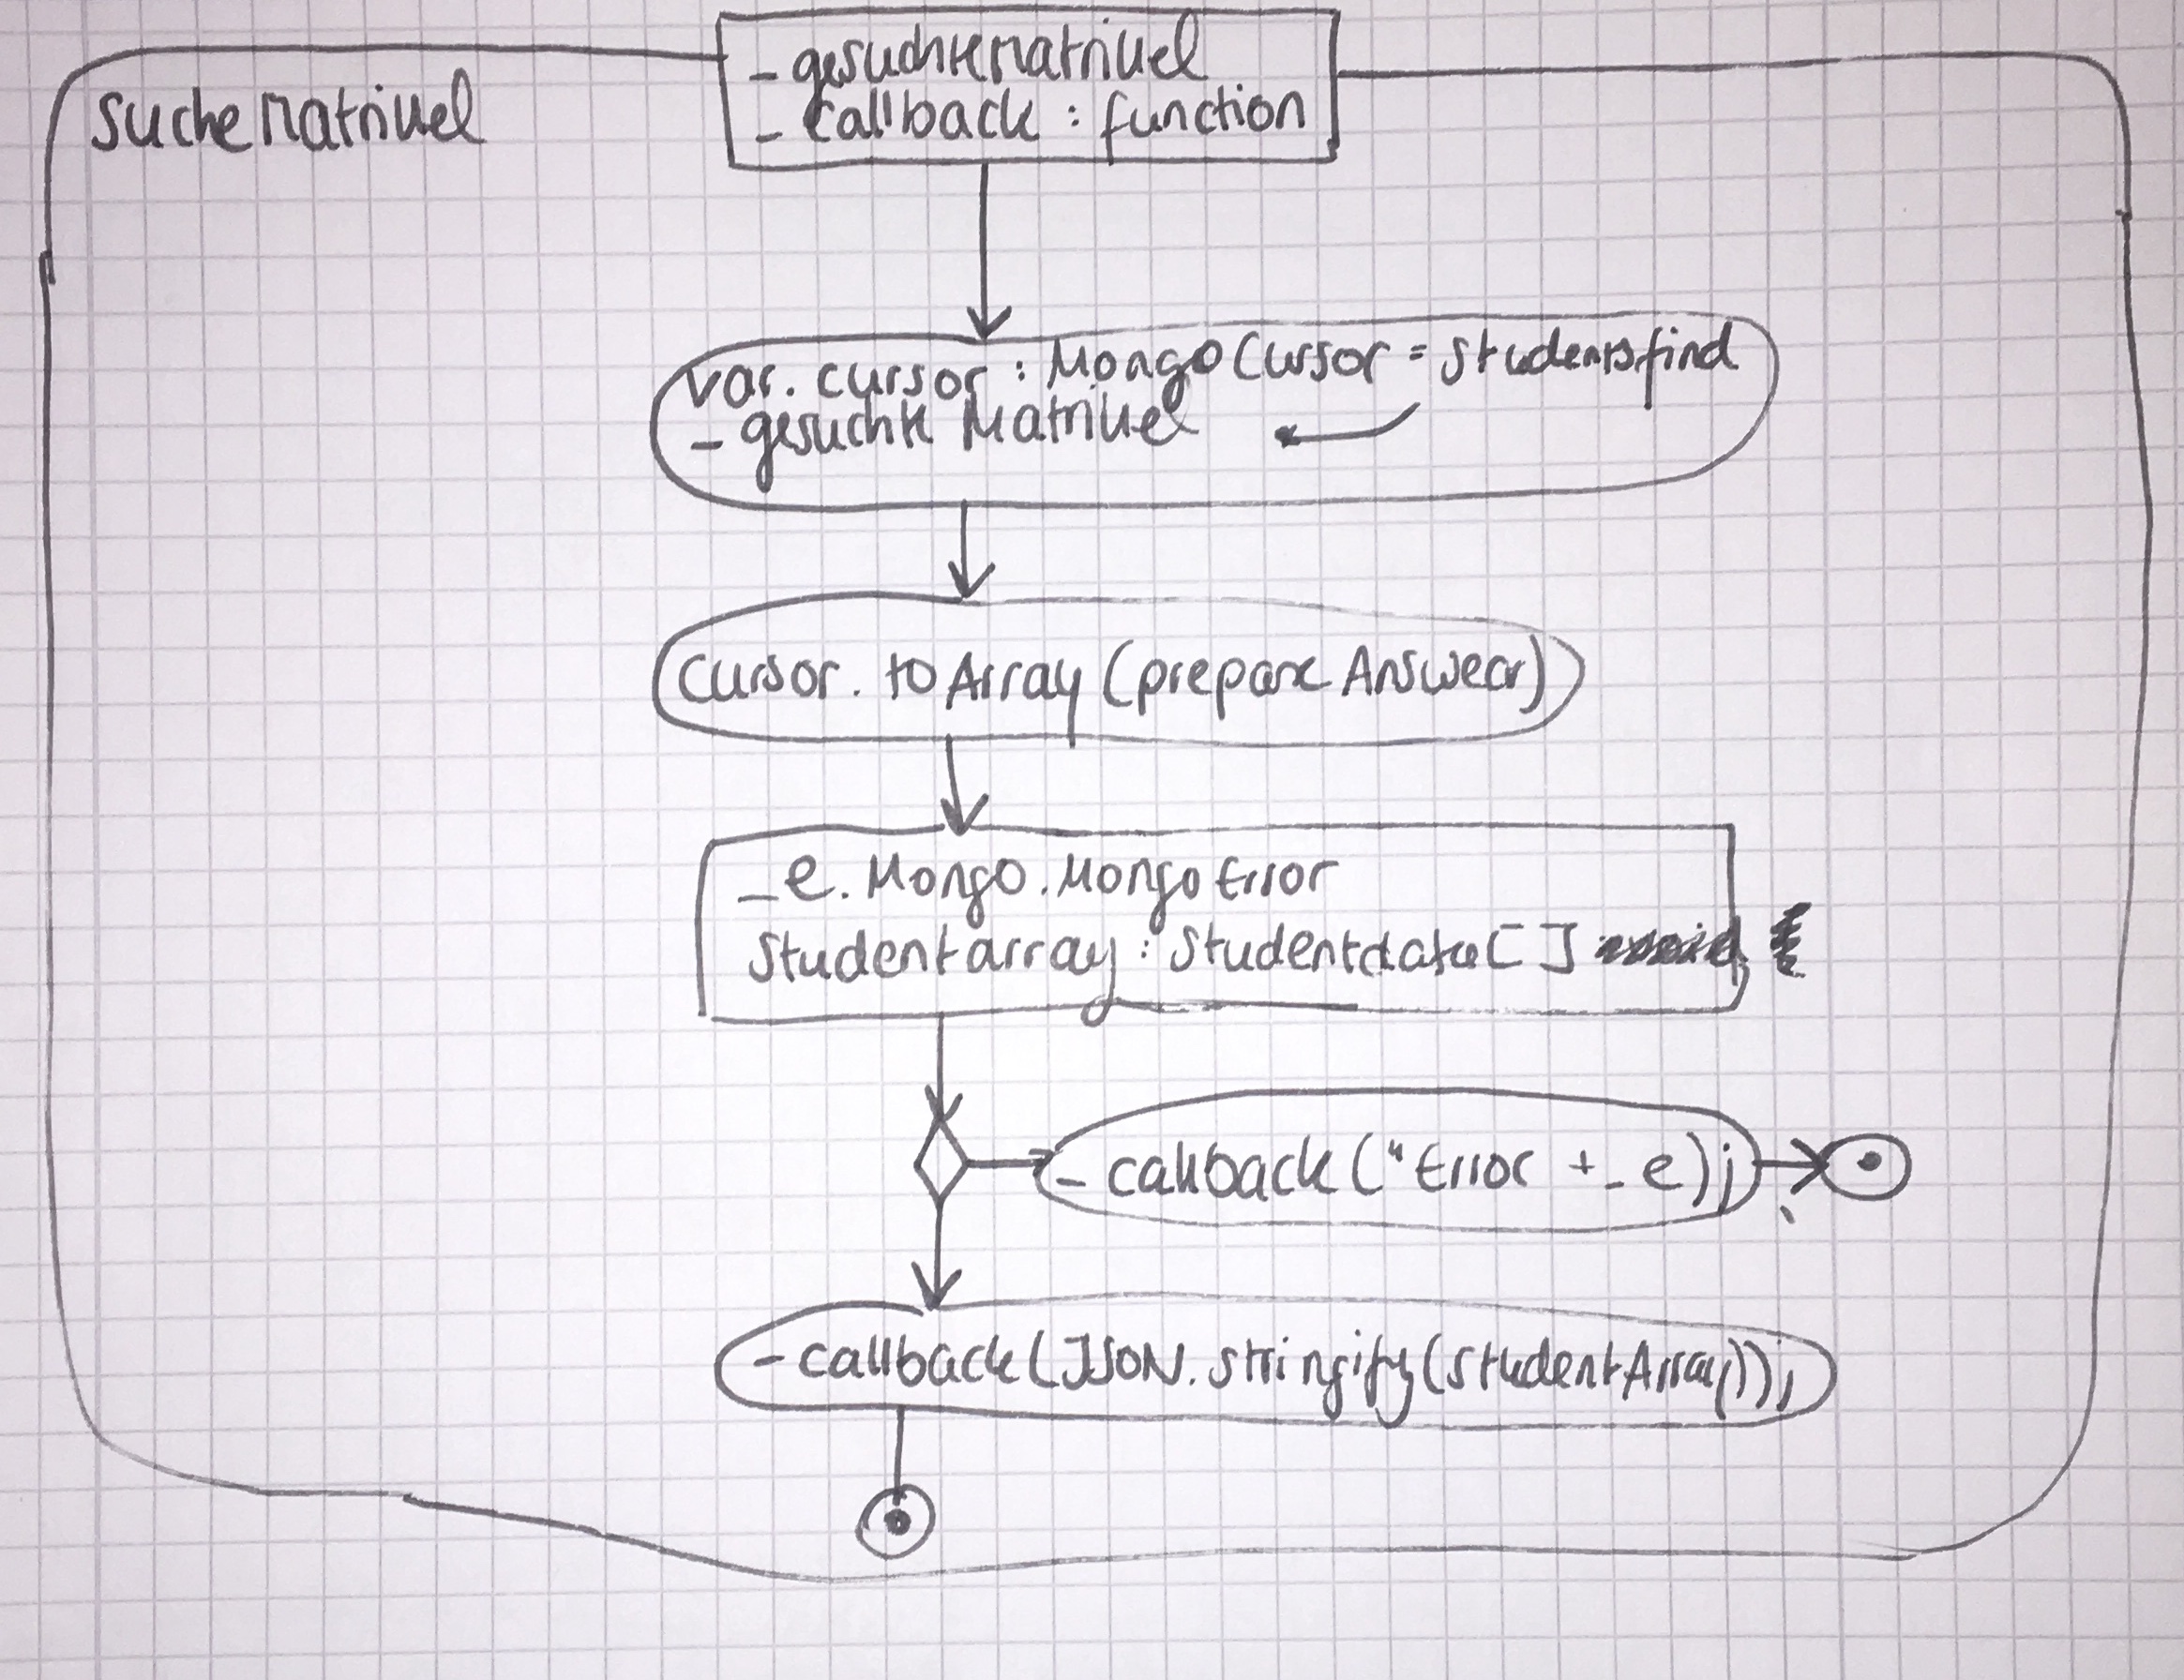 _ gesuchteMatrikel
_ callback : function
sucheMatrikel
var. cursor : MongoCursor = students.find
_ gesuchte Matrikel
cursor. toArray (prepare Answear)
_e. Mongo. Mongo Error
Studentarray : Studentdata[ ]
_ callback ("Error + _ e);
_ callback (JSON. stringify (studentArray));